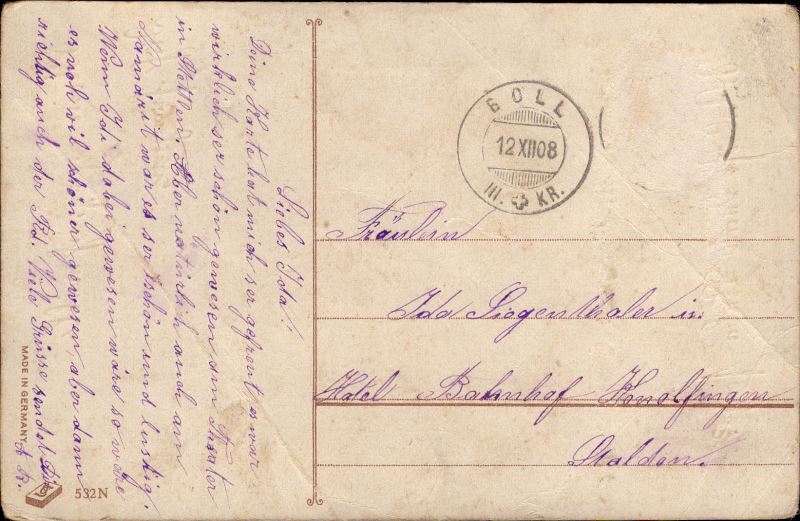 Liebes Ida!
Deine Karte hat mich ser gefreut, es war
wirklich ser schön gewesen am Theater
in Aber natürlich auch am
war es ser schön und lustig.
Wenn Idi dabei gewesen wäre so wäre
es noch vil schöner gewesen, aber dann
richtig auch der Viele Grüsse sendet Dir
MADE IN GERMANY
532N
BOLL
12 XII 08
III. KR.
Fräulein
Ida Siegenthaler in
Hotel Bahnhof Konolfingen
Stalden.